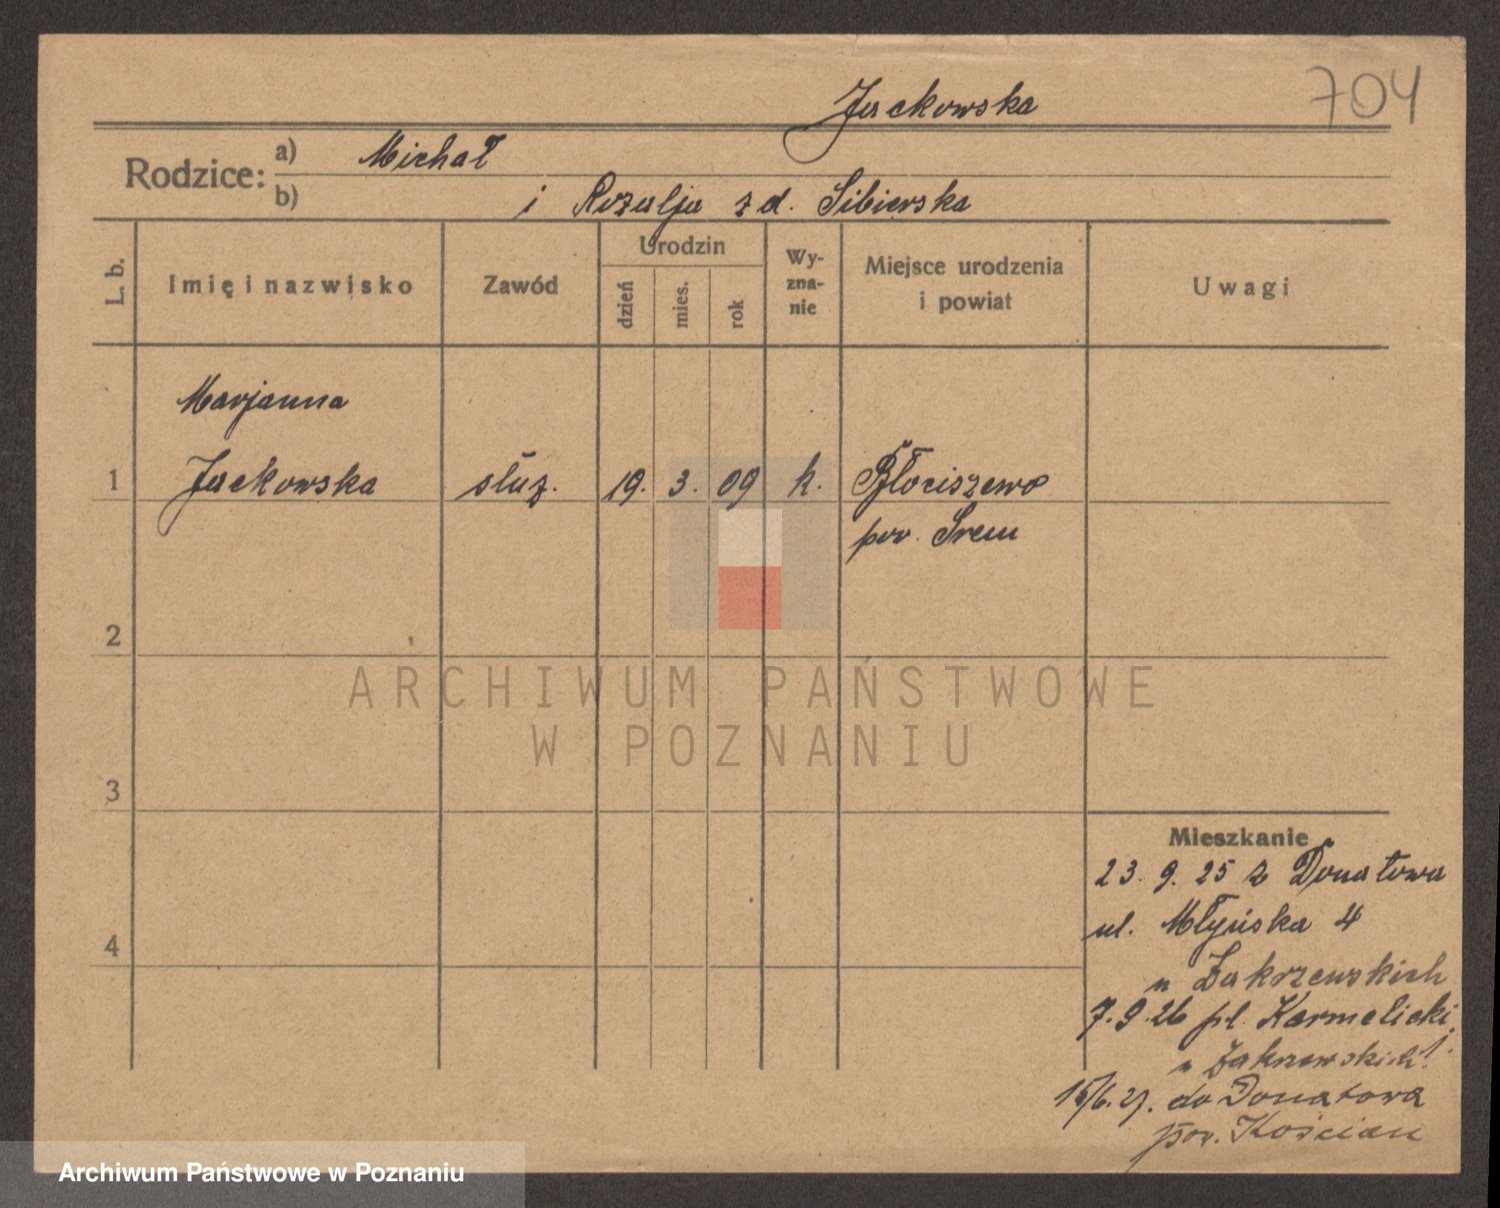 704
Jackowska
Rodzice: a) Michał
b) i Rozalja z d. Sibierska
L. b.
Imię i nazwisko
Zawód
Urodzin
dzień
mies.
rok
Wy-
zna-
nie
Miejsce urodzenia
i powiat
Uwagi
Marjanna
1 Jackowska służ. 19. 3. 09 k. Błociszewo
pow. Srem
2
3
4
Mieszkanie
23. 9. 25 z Donatowa
ul. Młyńska 4
u Zakrzewskich
7. 9. 26 pl. Karmelicki 1.
u Zakrzewskich
15/6. 27. do Donatowa
pow. Kościan
ARCHIWUM PAŃSTWOWE
W POZNANIU
Archiwum Państwowe w Poznaniu